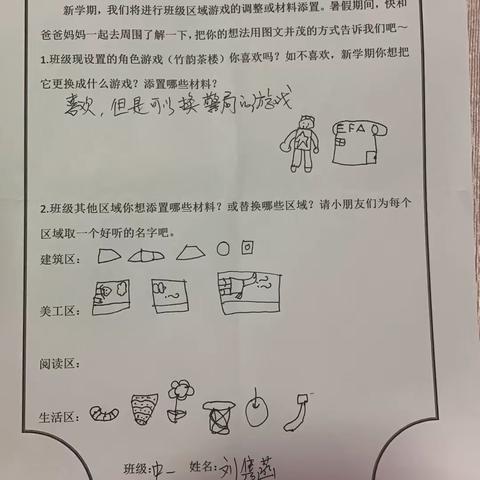 新学期，我们将进行班级区域游戏的调整或材料添置。暑假期间，快和
爸爸妈妈一起去周围了解一下，把你的想法用图文并茂的方式告诉我们吧～
1.班级现设置的角色游戏（竹韵茶楼）你喜欢吗？如不喜欢，新学期你想把
它更换成什么游戏？添置哪些材料？
喜欢，但是可以换警局的游戏
EFAO
2.班级其他区域你想添置哪些材料？或替换哪些区域？请小朋友们为每个
区域取一个好听的名字吧。
建筑区：
美工区：
阅读区：
生活区：
班级:中一 姓名:刘